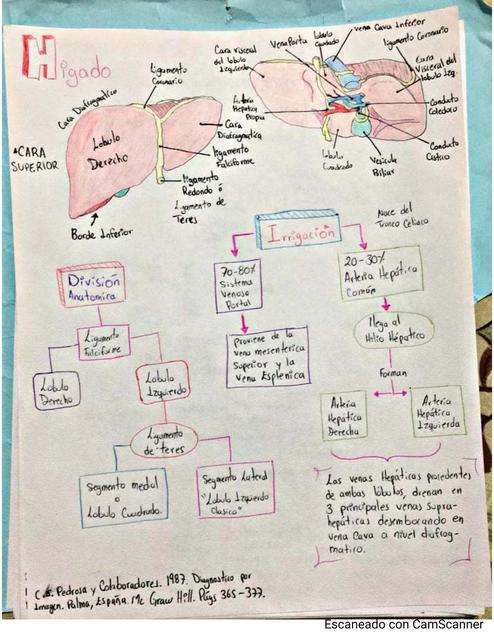 Hígado
Ligamento
Coronario
Cara Diafragmatica
Lobulo
Derecho
*CARA
SUPERIOR
Cara
Diafragmatica
ligamento
Falciforme
ligamento
Redondo ó
Ligamento de
Teres
Borde Inferior
Cara visceral
del lobulo
Izquierdo
Vena Porta
lobulo
Caudado
Vena Cava Inferior
ligamento Coronario
Cara
Visceral del
lobulo Izq.
Arteria
Hepática
Propia
Conducto
Coledoco
Conducto
Cistico
Vesicula
Biliar
lobulo
Cuadrado
Irrigación
Nace del
Tronco Celiaco
70-80%
Sistema
Venoso
Portal
20-30%
Arteria Hepática
Común
Proviene de la
vena mesenterica
Superior y la
Vena Esplenica
llega al
Hilio Hépatico
Forman
Arteria
Hepática
Derecha
Arteria
Hepática
Izquierda
División
Anatomica
Ligamento
Falciforme
Lobulo
Derecho
Lobulo
Izquierdo
Ligamento
de teres
Segmento medial
o
Lobulo Cuadrado.
Segmento Lateral
"Lobulo Izquierdo
Clasico"
Las venas Hepáticas procedentes
de ambos lóbulos, drenan en
3 principales venas supra-
hepáticas desembocando en
vena Cava a nivel diafrag-
matico.
C.S. Pedrosa y Colaboradores. 1987. Diagnostico por
Imagen. Palma, España. Mc Graw Hill. Págs 365-377.
Escaneado con CamScanner